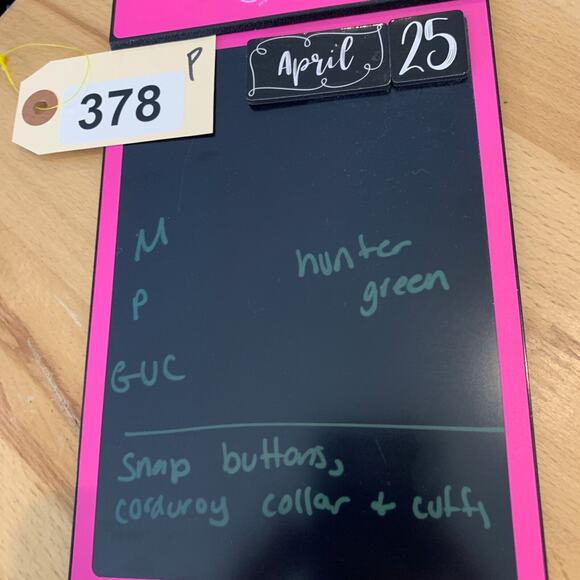 April 25
P
378
M
hunter
green
P
GUC
Snap buttons,
corduroy collar + cuffs